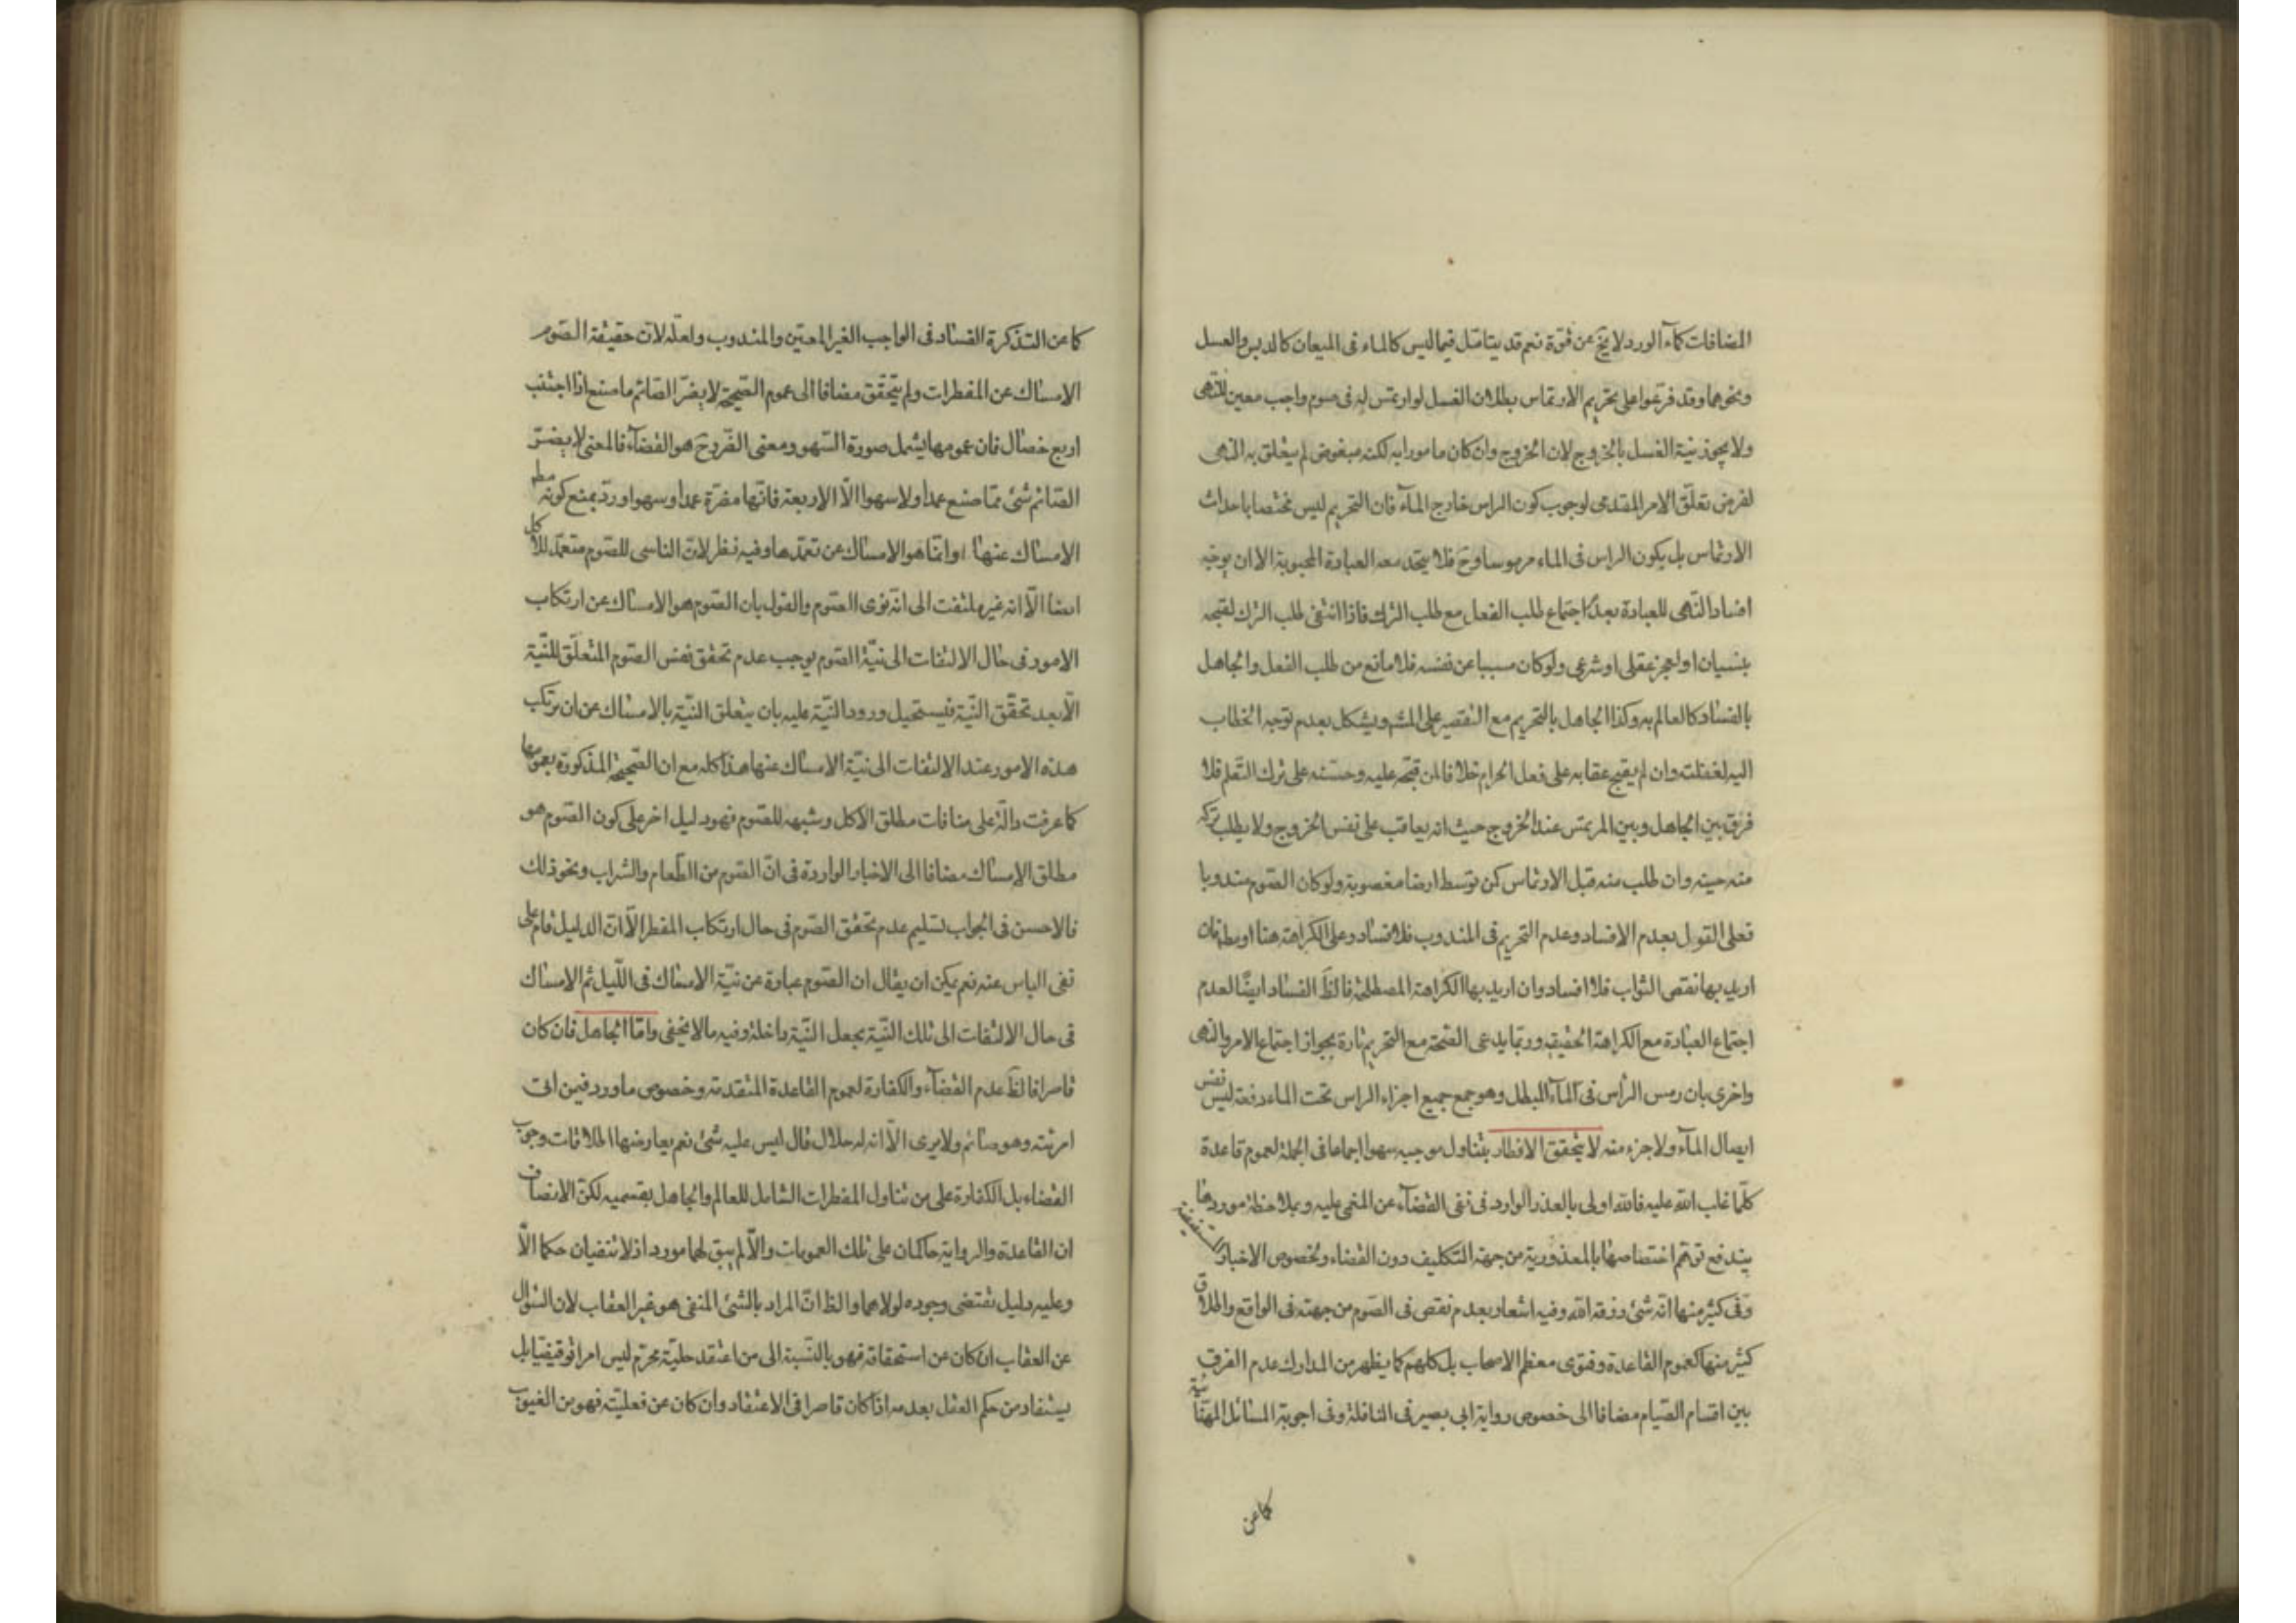 المضافات كمآء الورد لا يخ عن قوة نعم قد يتامل فيما ليس كالماء فى الميعان كالدبس والعسل
ونحوهما وقد فرعوا على تحريم الارتماس بطلان الغسل لو ارتمس له فى صوم واجب معين للنهى
ولا يجوز نية الغسل بالخروج لان الخروج وان كان مامورا به لكنه مبغوض لم يتعلق به النهى
لفرض تعلق الامر المقدمى لوجوب كون الراس خارج المآء فان التحريم ليس مختصا باحداث
الارتماس بل يكون الراس فى الماء مرموسا وح فلا يتحد معه العبادة المحبوبة الا ان يوجه
افساد النهى للعبادة بعدم اجتماع طلب الفعل مع طلب الترك فاذا انتفى طلب الترك لقبحه
بنسيان او لعجز عقلى او شرعى ولو كان مسببا عن نفسه فلا مانع من طلب الفعل والجاهل
بالفساد كالعالم به وكذا الجاهل بالتحريم مع التقصير على المشهور ويشكل بعدم توجه الخطاب
اليه لغفلته وان لم يقبح عقابه على فعل الحرام خلافا لمن قبحه عليه وحسنه على ترك التعلم فلا
فرق بين الجاهل وبين المرتمس عند الخروج حيث انه يعاقب على نفس الخروج ولا يطلب تركه
منه حينه وان طلب منه قبل الارتماس كمن توسط ارضا مغصوبة ولو كان الصوم مندوبا
فعلى القول بعدم الافساد وعدم التحريم فى المندوب فلا فساد وعلى الكراهة هنا او مطلقا فان
اريد بها نقص الثواب فلا افساد وان اريد بها الكراهة المصطلحة فالظ الفساد ايضًا لعدم
اجتماع العبادة مع الكراهة الحقيقية وربما يدعى الصحة مع التحريم تارة بجواز اجتماع الامر والنهى
واخرى بان رمس الرأس فى المآء المبطل وهو جمع جميع اجزاء الراس تحت الماء دفعة ليس نفس
ايصال المآء ولا جزء منه لا يتحقق الافطار بتناول موجبه سهوا اجماعا فى الجملة لعموم قاعدة
كلما غلب الله عليه فالله اولى بالعذر الوارد فى نفى القضآء عن المغمى عليه وبملاحظة موردها
يندفع توهم اختصاصها بالمعذورية من جهة التكليف دون القضاء ولخصوص الاخبار المستفيضة
وفى كثير منها انه شئ رزقه الله وفيه اشعار بعدم نقص فى الصوم من جهته فى الواقع واطلاق
كثير منها كعموم القاعدة وفتوى معظم الاصحاب بل كلهم كما يظهر من المدارك عدم الفرق
بين اقسام الصيام مضافا الى خصوص رواية ابى بصير فى النافلة وفى اجوبة المسائل المهنائية
كما عن
كما عن التذكرة الفساد فى الواجب الغير المعين والمندوب ولعله لان حقيقة الصوم
الامساك عن المفطرات ولم يتحقق مضافا الى عموم الصحيحة لا يضر الصائم ما صنع اذا اجتنب
اربع خصال فان عمومها يشمل صورة السهو ومعنى الضرر ح هو القضآء فالمعنى لا يضر
الصائم شئ مما صنع عمدا ولا سهوا الا الاربعة فانها مضرة عمدا وسهوا ورد بمنع كونه مطلق
الامساك عنها وانما هو الامساك عن تعمدها وفيه نظر لان الناسى للصوم متعمد للاكل
ايضا الا انه غير ملتفت الى انه نوى الصوم والقول بان الصوم هو الامساك عن ارتكاب
الامور فى حال الالتفات الى نية الصوم يوجب عدم تحقق نفس الصوم المتعلق للنية
الا بعد تحقق النية فيستحيل ورود النية عليه بان يتعلق النية بالامساك عن ان يرتكب
هذه الامور عند الالتفات الى نية الامساك عنها هذا كله مع ان الصحيحة المذكورة بعمومها
كما عرفت دالة على منافات مطلق الاكل وشبهه للصوم فهو دليل اخر على كون الصوم هو
مطلق الامساك مضافا الى الاخبار الواردة فى ان الصوم من الطعام والشراب ونحو ذلك
فالاحسن فى الجواب تسليم عدم تحقق الصوم فى حال ارتكاب المفطر الا ان الدليل قام على
نفى الباس عنه نعم يمكن ان يقال ان الصوم عبارة عن نية الامساك فى الليل ثم الامساك
فى حال الالتفات الى تلك النية بجعل النية داخلة وفيه ما لا يخفى واما الجاهل فان كان
قاصرا فالظ عدم القضآء والكفارة لعموم القاعدة المتقدمة وخصوص ما ورد فيمن اتى
امرئته وهو صائم ولا يرى الا انه له حلال قال ليس عليه شئ نعم يعارضها اطلاقات وجوب
القضاء بل الكفارة على من تناول المفطرات الشامل للعالم والجاهل بقسميه لكن الانصاف
ان القاعدة والرواية حاكمان على تلك العمومات والا لم يبق لهما مورد اذ لا تنفيان حكما الا
وعليه دليل تقتضى وجوده لولاهما والظ ان المراد بالشئ المنفى هو غير العقاب لان السؤال
عن العقاب ان كان عن استحقاقه فهو بالنسبة الى من اعتقد حلية محرم ليس امرا توقيفيا بل
يستفاد من حكم العقل بعدمه اذا كان قاصرا فى الاعتقاد وان كان عن فعليته فهو من الغيوب